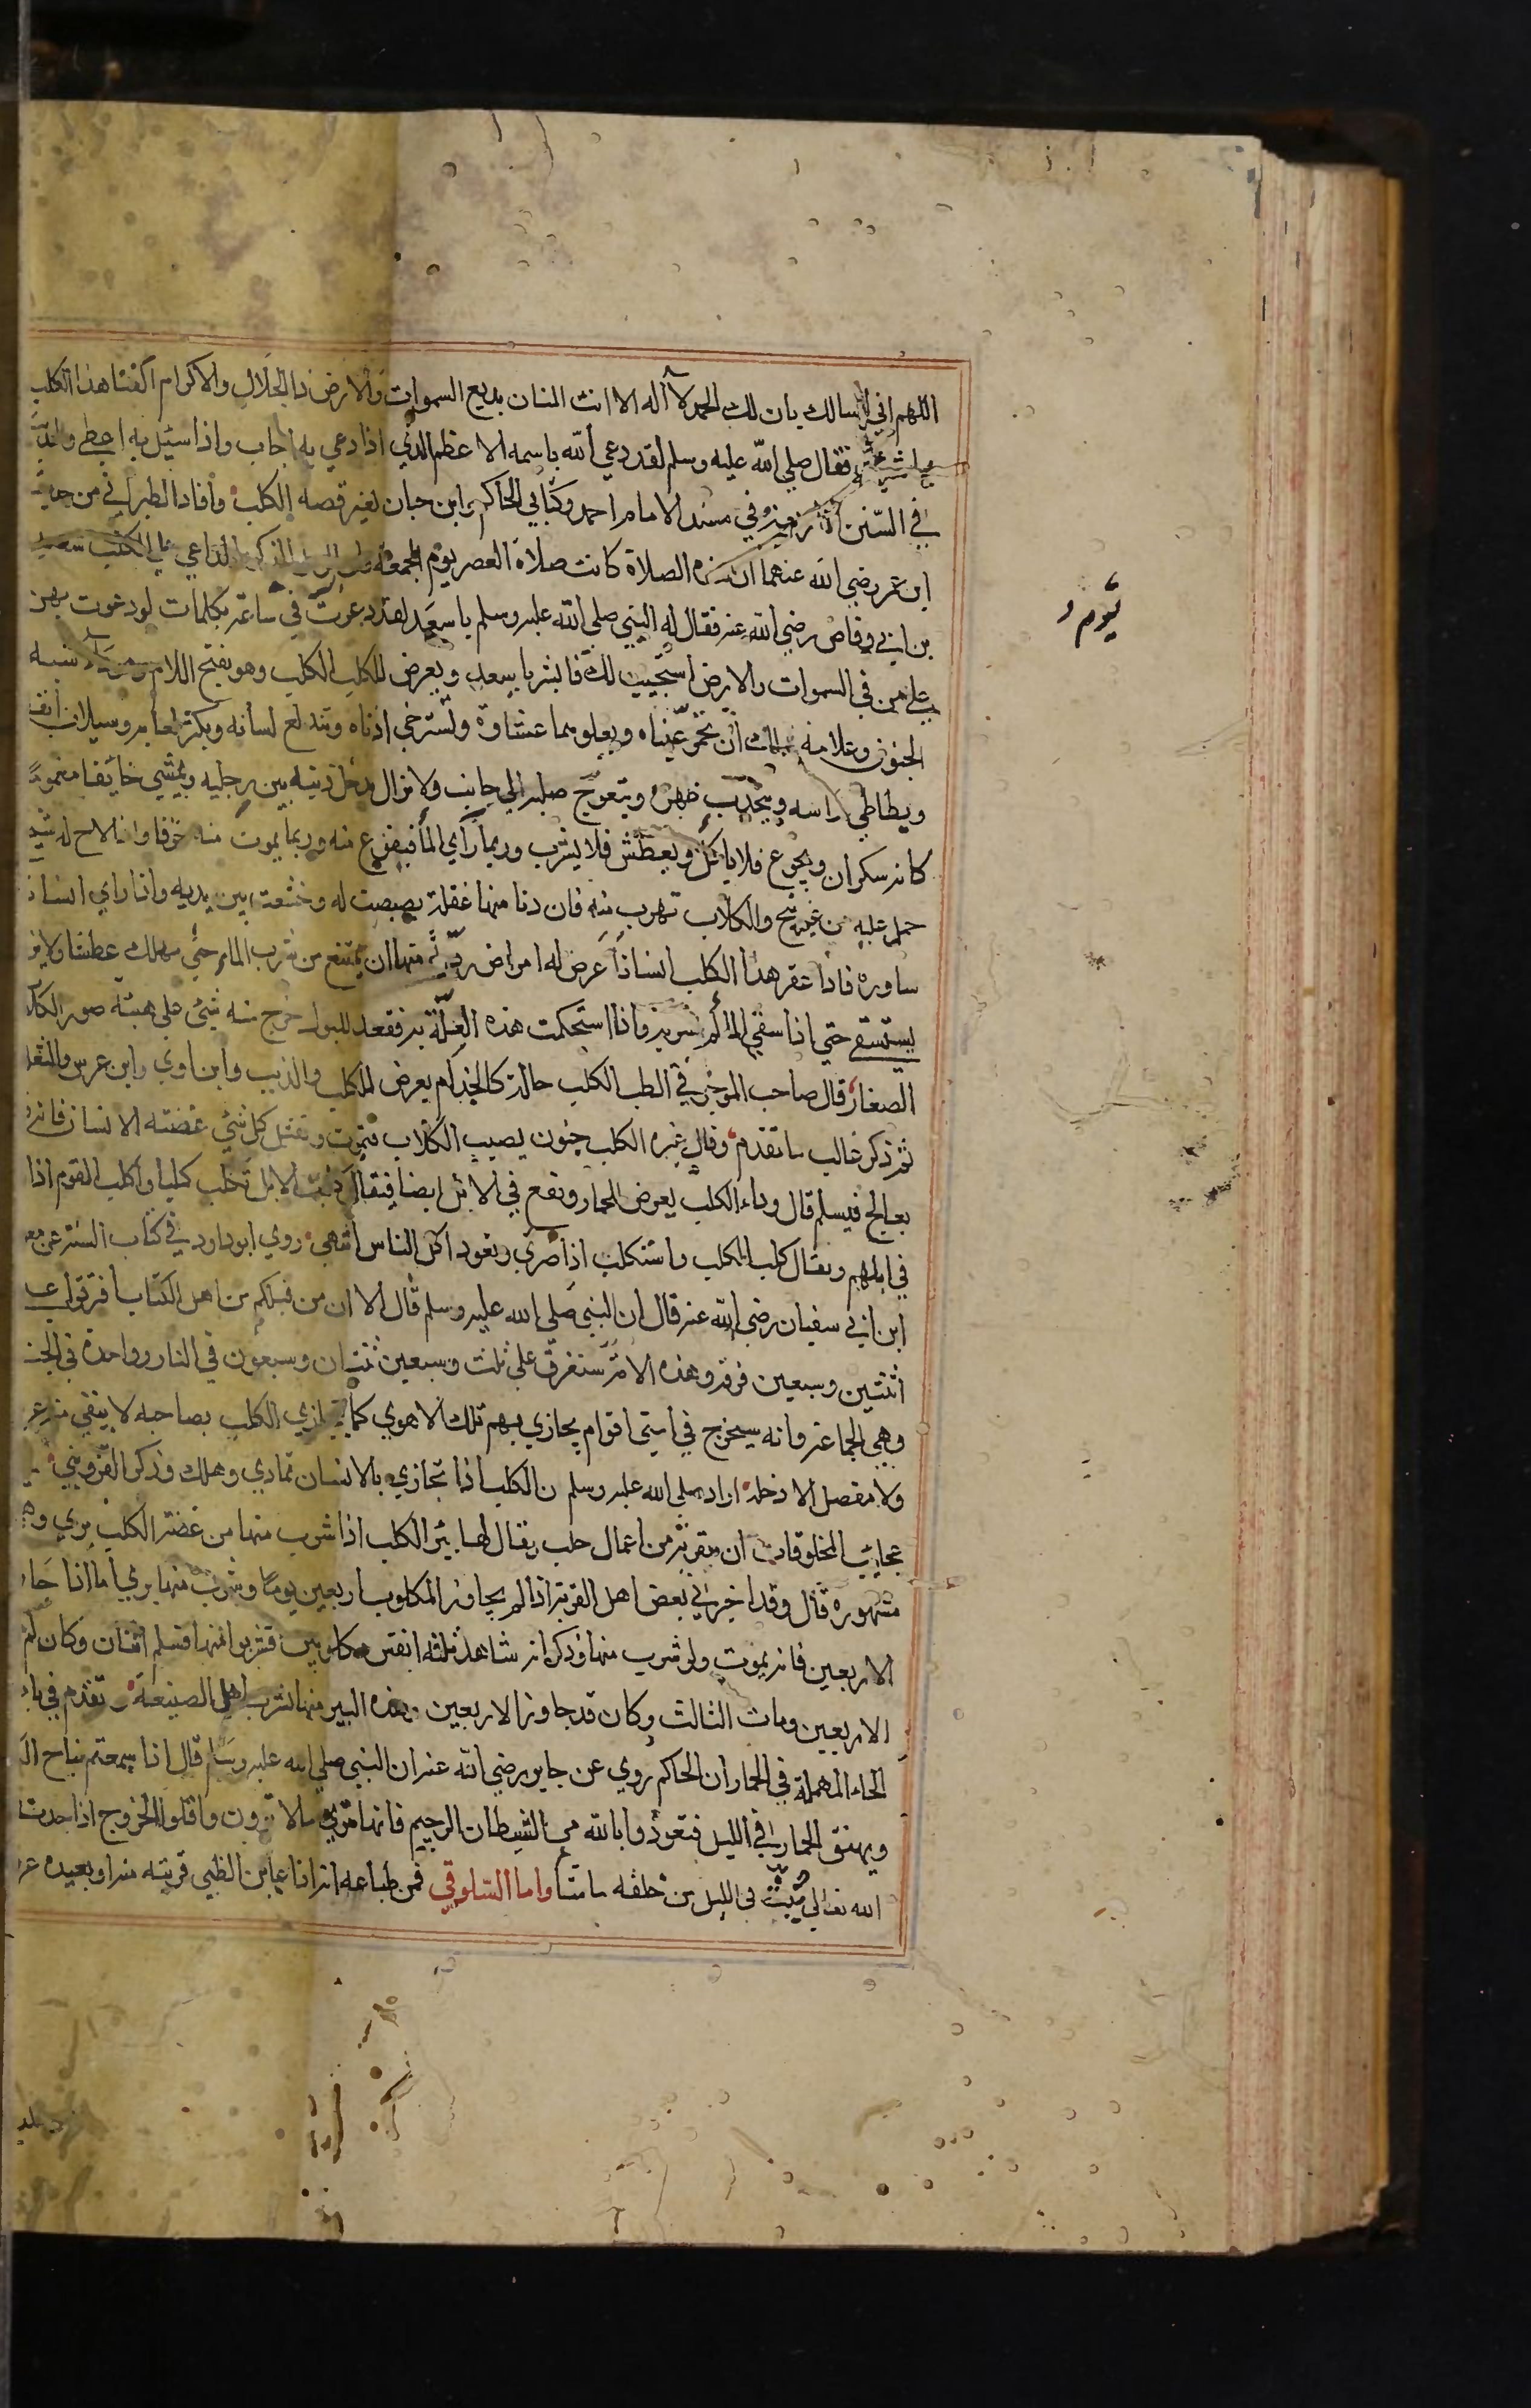 اللهم اني اسالك بان لك الحمد لا اله الا انت المنان بديع السموات والارض ذا الجلال والاكرام اكفنا هذا الكلب
بما شئت فقال صلي الله عليه وسلم لقد دعي الله باسمه الاعظم الذي اذا دعي به اجاب واذا سئيل به اعطي
في السنن الاربعة وفي مسند الامام احمد وكتابي الحاكم وابن حبان لغير قصه الكلب وأفاد الطبراني من حديث
ابن عمر رضي الله عنهما ان هذه الصلاة كانت صلاة العصر يوم الجمعة الداعي علي الكلب سعد
بن ابي وقاص رضي الله عنه فقال له النبي صلي الله عليه وسلم يا سعد لقد دعوت في ساعة بكلمات لو دعوت بهن
علي من في السموات والارض استجيب لك فابشر يا سعد ويعرض للكلب الكلب وهو بفتح اللام شبه
الجنون وعلامة ذلك ان تحمر عيناه ويعلوهما غشاوة وتسترخي اذناه ويندلع لسانه ويكثر لعابه وسيلان انفه
ويطاطي راسه ويتحدب ظهره ويتعوج صلبه الي جانب ولا يزال يدخل ذنبه بين رجليه ويمشي خايفا مغموما
كانه سكران ويجوع فلا ياكل ويعطش فلا يشرب وربما راي الما فيفزع منه وربما يموت منه خوفا واذا لاح له شبح
حمل عليه من غير نبح والكلاب تهرب منه فان دنا منها غفلة بصبصت له وخشعت بين يديه واذا راي انسانا
ساوره فاذا عقر هذا الكلب انسانا عرض له امراض ردية منها ان يمتنع من شرب الماء حتي يهلك عطشا ولا يزال
يستسقي حتي اذا سقي الما لم يشربه واذا استحكمت هذه العلة به فقعد للبول خرج منه شئ علي هيئة صور الكلاب
الصغار قال صاحب الموجز في الطب الكلب حالة كالجذام يعرض للكلب والذيب وابن اوي وابن عرس والثعلب
ثم ذكر غالب ما تقدم وقال غيره الكلب جنون يصيب الكلاب فتموت وتقتل كل شئ عضته الا الانسان فانه قد
يعالج فيسلم قال وداء الكلب يعرض للحمار ويقع في الابل ايضا فيقال كلبت الابل تكلب كلبا واكلب القوم اذا وقع
في ابلهم ويقال كلب الكلب واستكلب اذا ضري وتعود اكل الناس انتهي روي ابو داود في كتاب السنة عن معوية
ابن ابي سفيان رضي الله عنه قال ان النبي صلي الله عليه وسلم قال الا ان من قبلكم من اهل الكتاب افترقوا علي
اثنتين وسبعين فرقة وهذه الامة ستفرق علي ثلث وسبعين ثنتان وسبعون في النار وواحدة في الجنة
وهي الجماعة وانه سيخرج في امتي اقوام يجازي بهم تلك الاهوي كما يتجازي الكلب بصاحبه لا يبقي منه عرق
ولا مفصل الا دخله اراد صلي الله عليه وسلم ان الكلب اذا تجازي بالانسان تمادي وهلك وذكر القزويني في
عجايب المخلوقات ان بقرية من اعمال حلب يقال لها بئر الكلب اذا شرب منها من عضه الكلب بري وهي
مشهورة قال وقد اخبرني بعض اهل القرية اذا لم يجاوز المكلوب اربعين يوما وشرب منها بري اما اذا جاوز
الاربعين فانه يموت ولو شرب منها وذكر انه شاهد ثلثة انفس مكلوبين فشربوا منها فسلم اثنان وكان لم
الاربعين ومات الثالث وكان قد جاوز الاربعين وهذه البير منها شرب اهل الضيعة وتقدم في باب
الحاء المهملة في الحمار ان الحاكم روي عن جابر رضي الله عنه ان النبي صلي الله عليه وسلم قال اذا سمعتم نباح الكلب
ونهيق الحمار في الليل فتعوذوا بالله من الشيطان الرجيم فانها تري ما لا ترون واقلوا الخروج اذا جدت
الله تعالي يبث في الليل من خلقه ما شا واما السلوقي فمن طباعه انه اذا عاين الظبي قريبة منه او بعيدة عرف